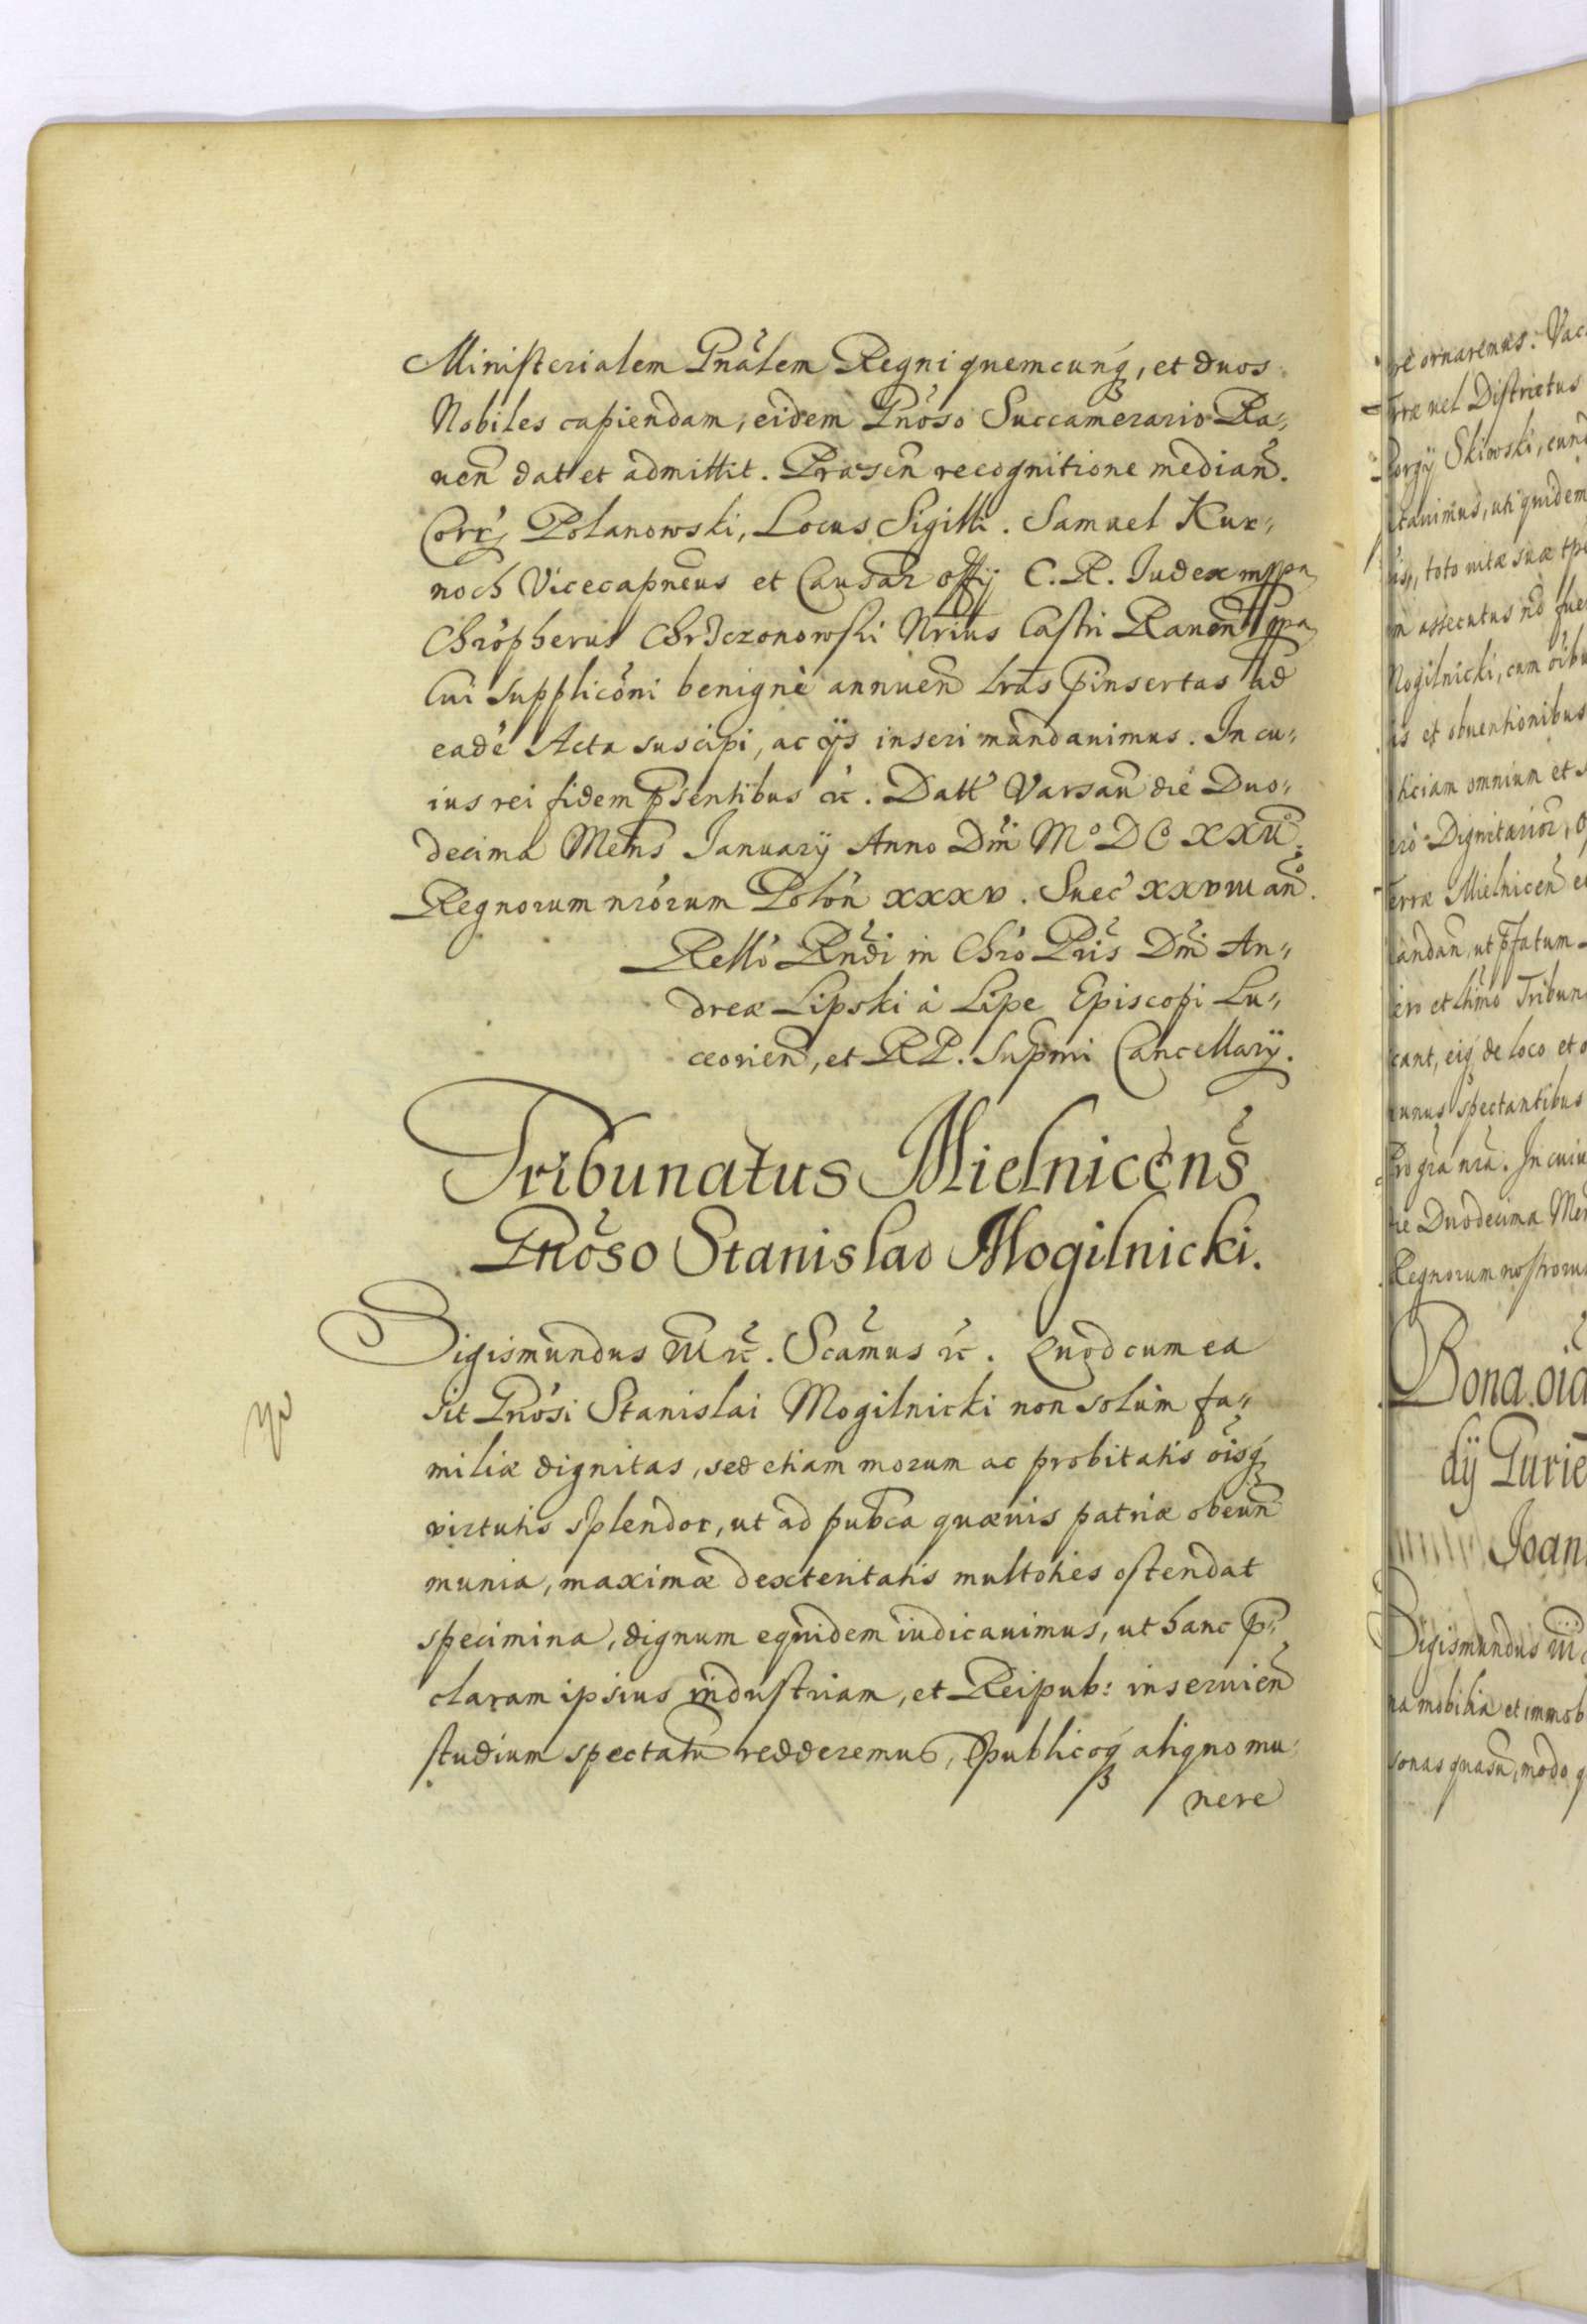 Ministerialem Gnalem Regni quemcunq, et duos
Nobiles capiendam, eidem Gnoso Succamerario Ra„
uen dat et admittit. Præsen recognitione median.
Corr Polanowski, Locus Sigilli. Samuel Kur„
noch Vicecapneus et Causar offij C. R. Iudex mppa
Chropherus Chrzczonowski Nrius Castri Rauen mpa
Cui supplicõni benignè annuen Lras pinsertas ad
eadé Acta suscipi, ac ijs inseri mandauimus. In cu„
ius rei fidem psentibus &c. Datt Varsau die Duo„
decima Mens Ianuarij Anno Dni Mº DC XXII.
Regnorum nrorum Polon XXXV. Suec XXVIII an.
Rellò Rndi in Chro Pris Dni An„
dreæ Lipski à Lipe Episcopi Lu„
ceorien, et RP. Supmi Cancellarij.
Tribunatus Mielnicens
Gnõso Stanislao Mogilnicki.
Sigismundus III &c. Scamus &c. Quod cum ea
sit Gnosi Stanislai Mogilnicki non solùm fa„
miliæ dignitas, sed etiam morum ac probitatis oisq
virtutis splendor, ut ad pubca quæuis patriæ obeun
munia, maximæ dexteritatis multoties ostendat
specimina, dignum equidem iudicauimus, ut hanc p„
claram ipsius industriam, et Reipub: inseruien
studium spectatu redderemus, publicoq aliquo mu„
nere
re ornaremus: Vac
rræ uel Districtus
orgij Skiwski, eund
tauimus, uti quidem
toto uitæ suæ tpe
m assecutus nõ fue
Mogilnicki, cum oibu
is et obuentionibus
titiam omnium et s
Dignitarior, O
erræ Mielnicen et
andan, ut pfatum
ro et ltimo Tribun
eant, eiq de loco et o
unus spectantibus
Pro gra nra. In cuiu
ie Duodecima Men
Regnorum nostroru
Bona oia
dij Gurie
Ioan
Sigismundus III
na mobilia et immob
sonas quasu, modo q